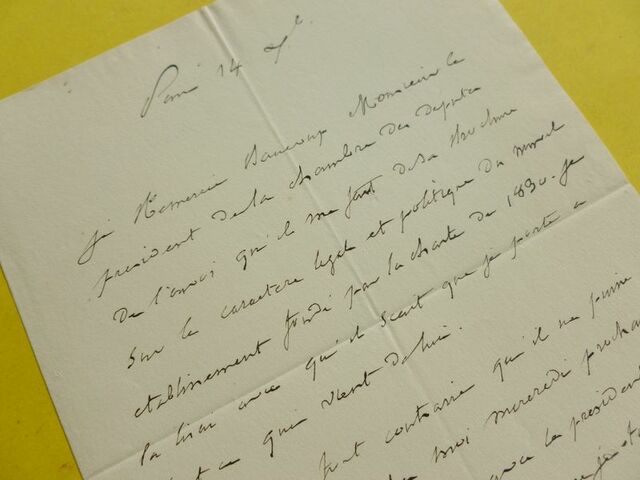 Paris 14 Xbre
Je Remercie Beaucoup Monsieur le
president de la chambre des deputés
De l'envoi qu'il me fait de sa Brochure
Sur le caractere legal et politique du nouvel
etablissement fondé par la charte de 1830. Je
la lirai avec qu'il scait que je porte a
tout ce qui vient de lui.
fort contrariée qu'il ne puisse
moi mercredi prochain
le president